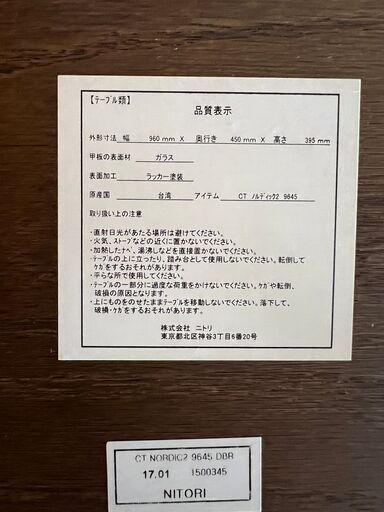 【テーブル類】
品質表示
外形寸法 幅 960 mm X 奥行き 450 mm X 高さ 395 mm
甲板の表面材 ガラス
表面加工 ラッカー塗装
原産国 台湾 アイテム CT ノルディック2 9645
取り扱い上の注意
・直射日光があたる場所は避けてください。
・火気、ストーブなどの近くに置かないでください。
・加熱したナベ、湯沸しなどを直接置かないでください。
・テーブルの上に立ったり、踏み台として使用しないでください。転倒して
ケガをするおそれがあります。
・平らな所で使用してください。
・テーブルの一部分に過度な荷重をかけないでください。ケガや転倒、
破損の原因となります。
・上にものをのせたままテーブルを移動しないでください。落下して、
破損・ケガをするおそれがあります。
株式会社 ニトリ
東京都北区神谷3丁目6番20号
CT NORDIC2 9645 DBR
17.01 1500345
NITORI